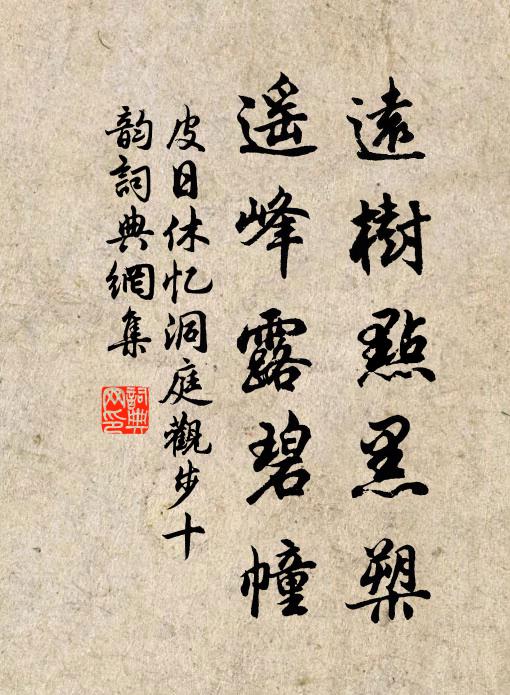 遠樹點黑槊
遥峰露碧幢
皮日休忆洞庭觀步十
韵詞典網集
詞典网印